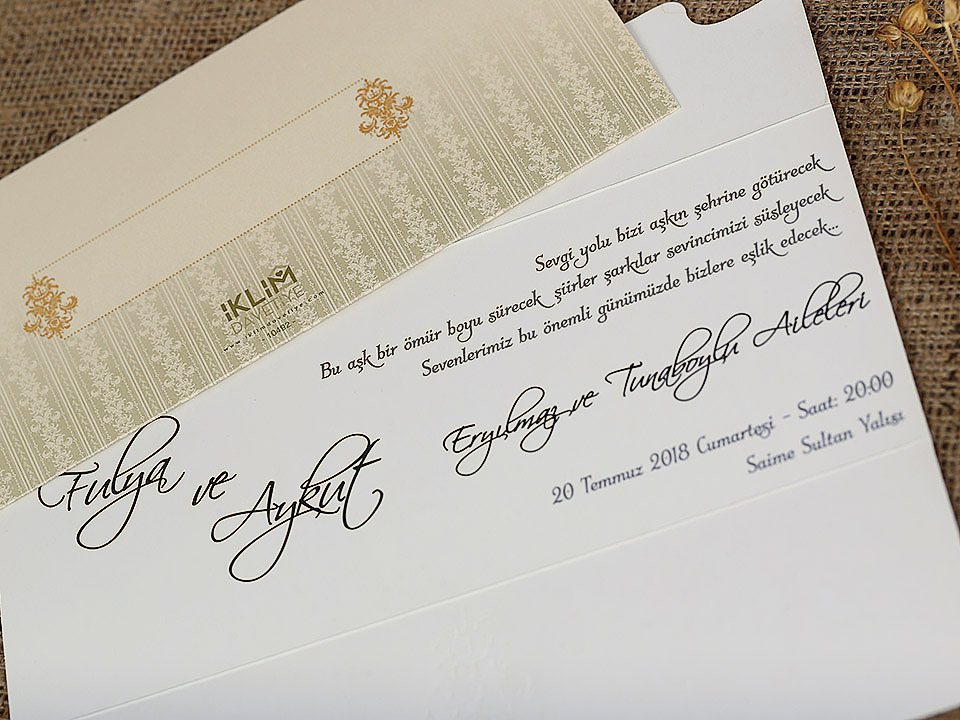 iKLiM
DAVETİYE
www.iklimdavetiye.com
10492
Sevgi yolu bizi aşkın şehrine götürecek
Bu aşk bir ömür boyu sürecek şiirler şarkılar sevincimizi süsleyecek
Sevenlerimiz bu önemli günümüzde bizlere eşlik edecek...
Fulya ve Aykut
Eryılmaz ve Tunaboylu Aileleri
20 Temmuz 2018 Cumartesi - Saat: 20:00
Saime Sultan Yalısı